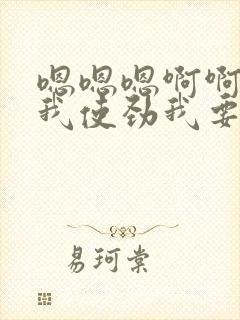 嗯嗯嗯啊啊
我使劲我要
易珂棠